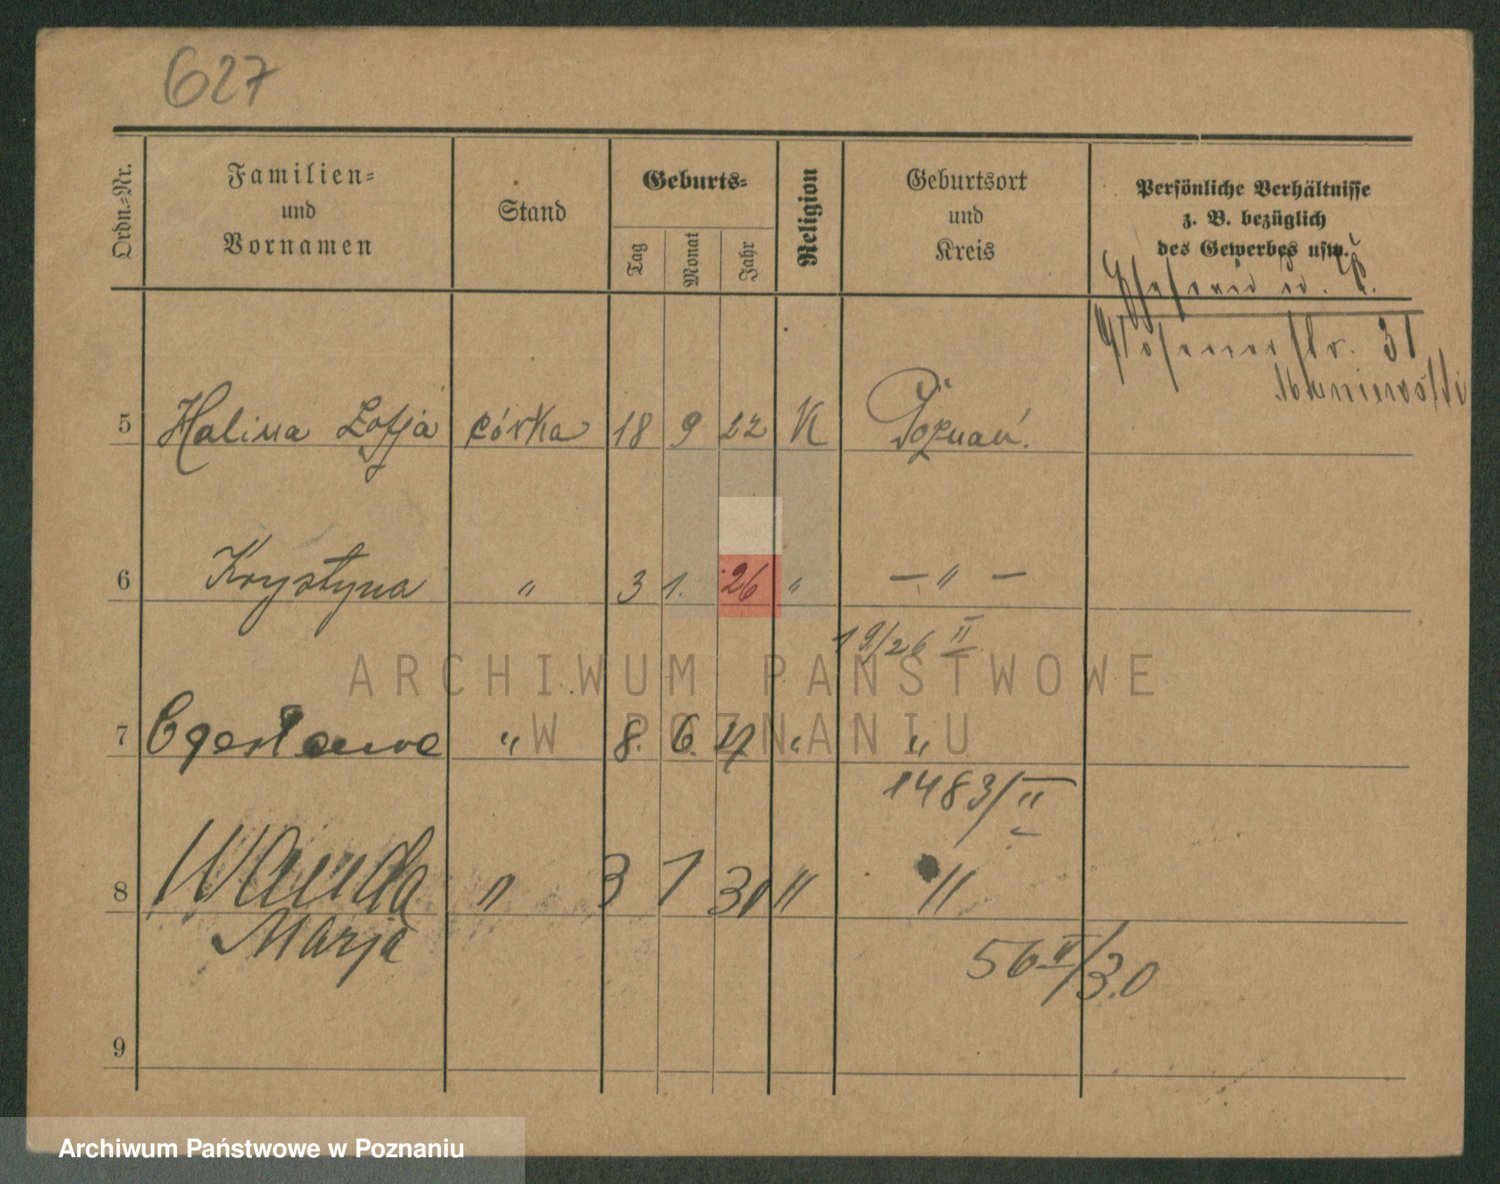 627
Ordn.-Nr.
Familien-
und
Vornamen
Stand
Geburts-
Tag
Monat
Jahr
Religion
Geburtsort
und
Kreis
Persönliche Verhältnisse
z. B. bezüglich
des Gewerbes usw.
31
5 Halina Zofja córka 18 9 22 K Poznań.
6 Krystyna " 3 1. 26 " — " —
19/26 II
7 " 8. 6. " "
1483/II
8 Wanda " 3 1 30 " "
Marja
56 II/30
9
ARCHIWUM PAŃSTWOWE
W POZNANIU
Archiwum Państwowe w Poznaniu